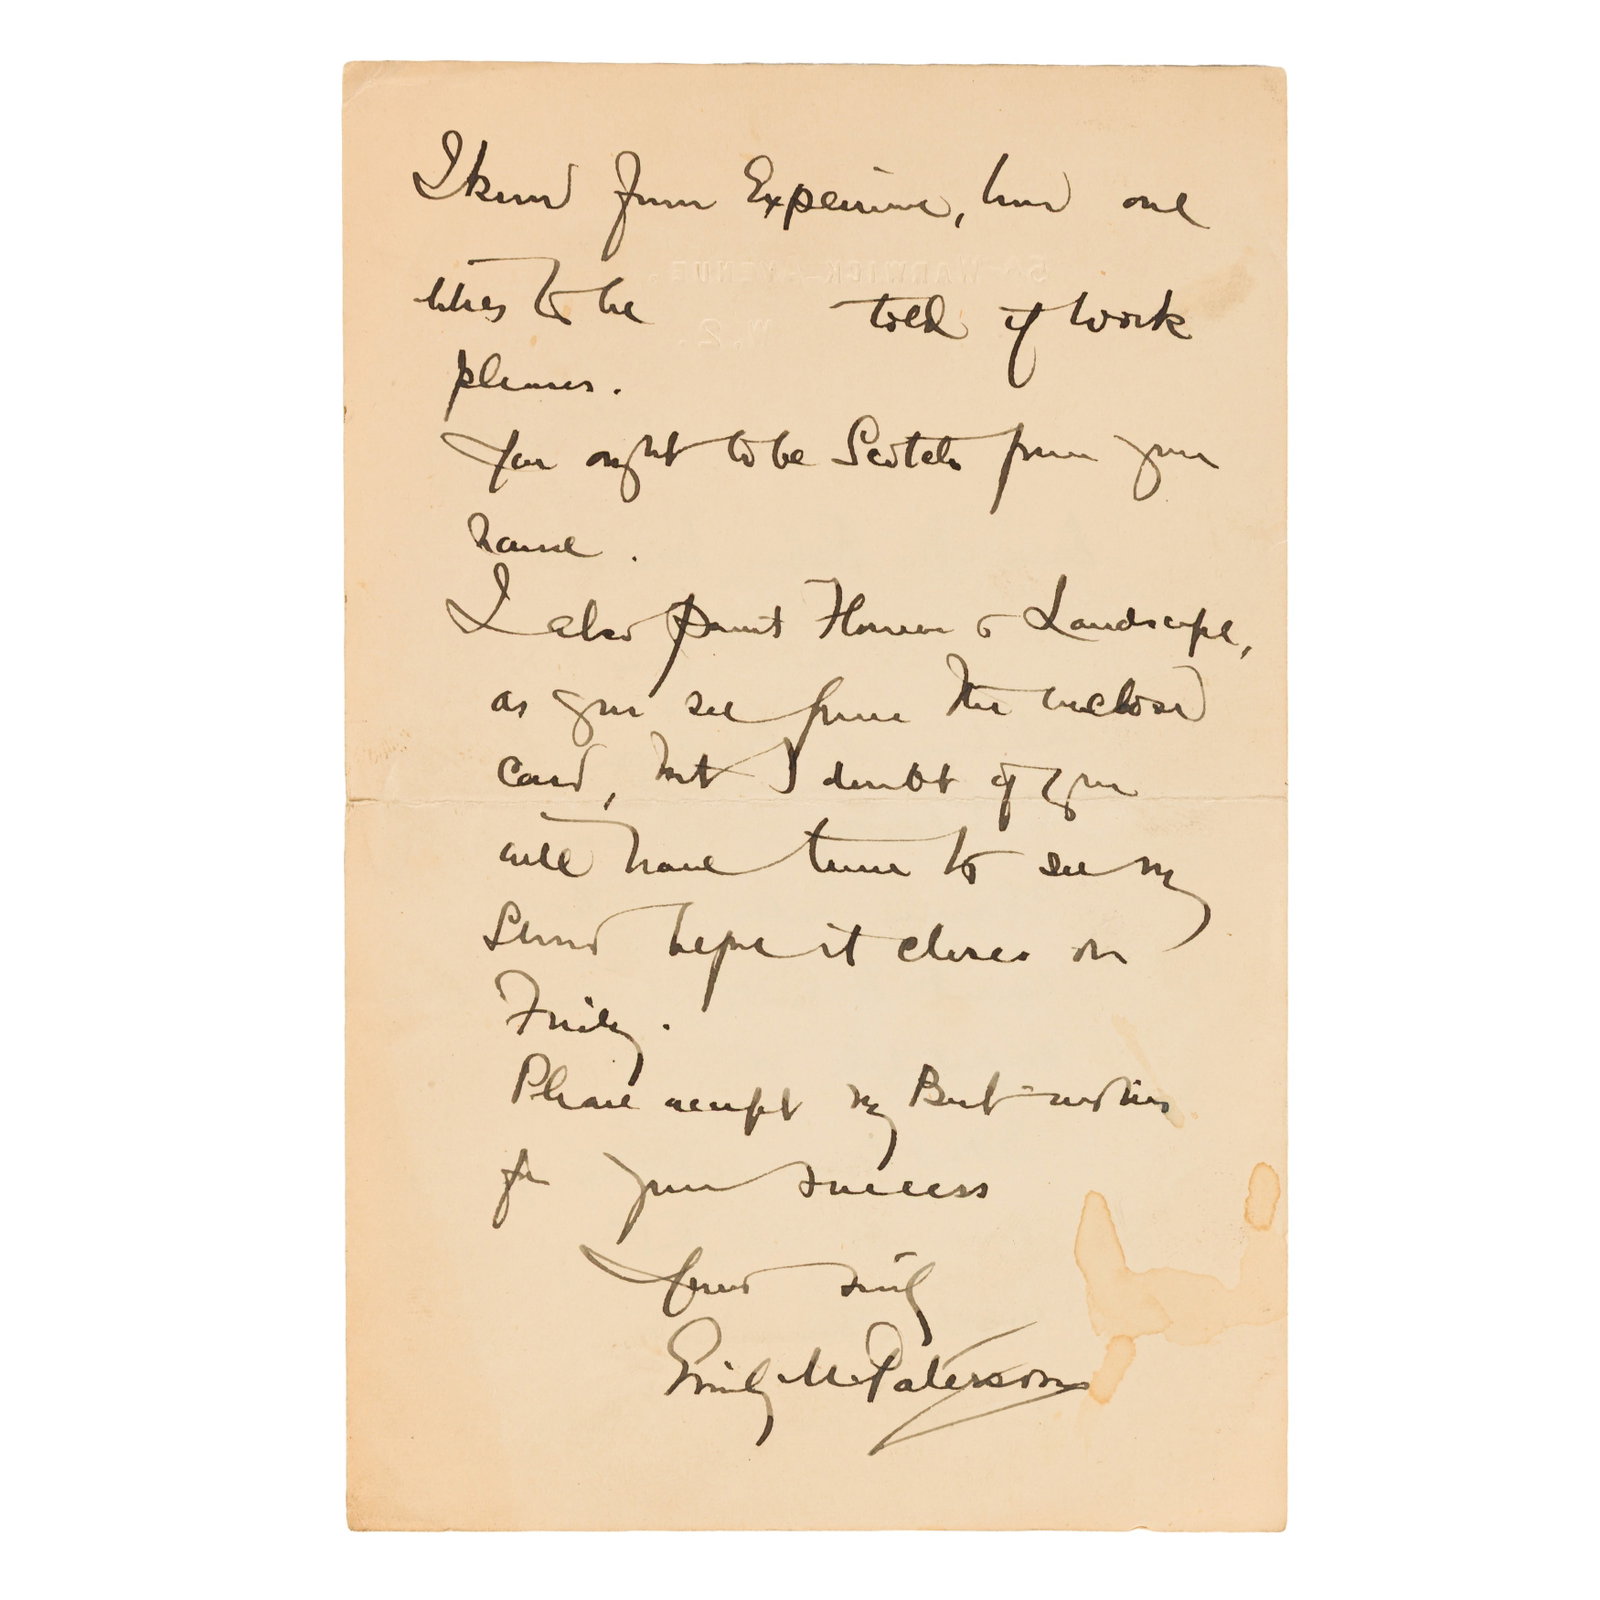 I know from Experience, how one
likes to be told if work
pleases.
You ought to be Scotch from your
name.
I also paint Flowers & Landscape,
as you see from the enclosed
card, but I doubt if you
will have time to see my
before it closes on
Friday.
Please accept my Best wishes
for your success
Yours sincly
Emily M Paterson
WARWICK AVENUE.
W.2.